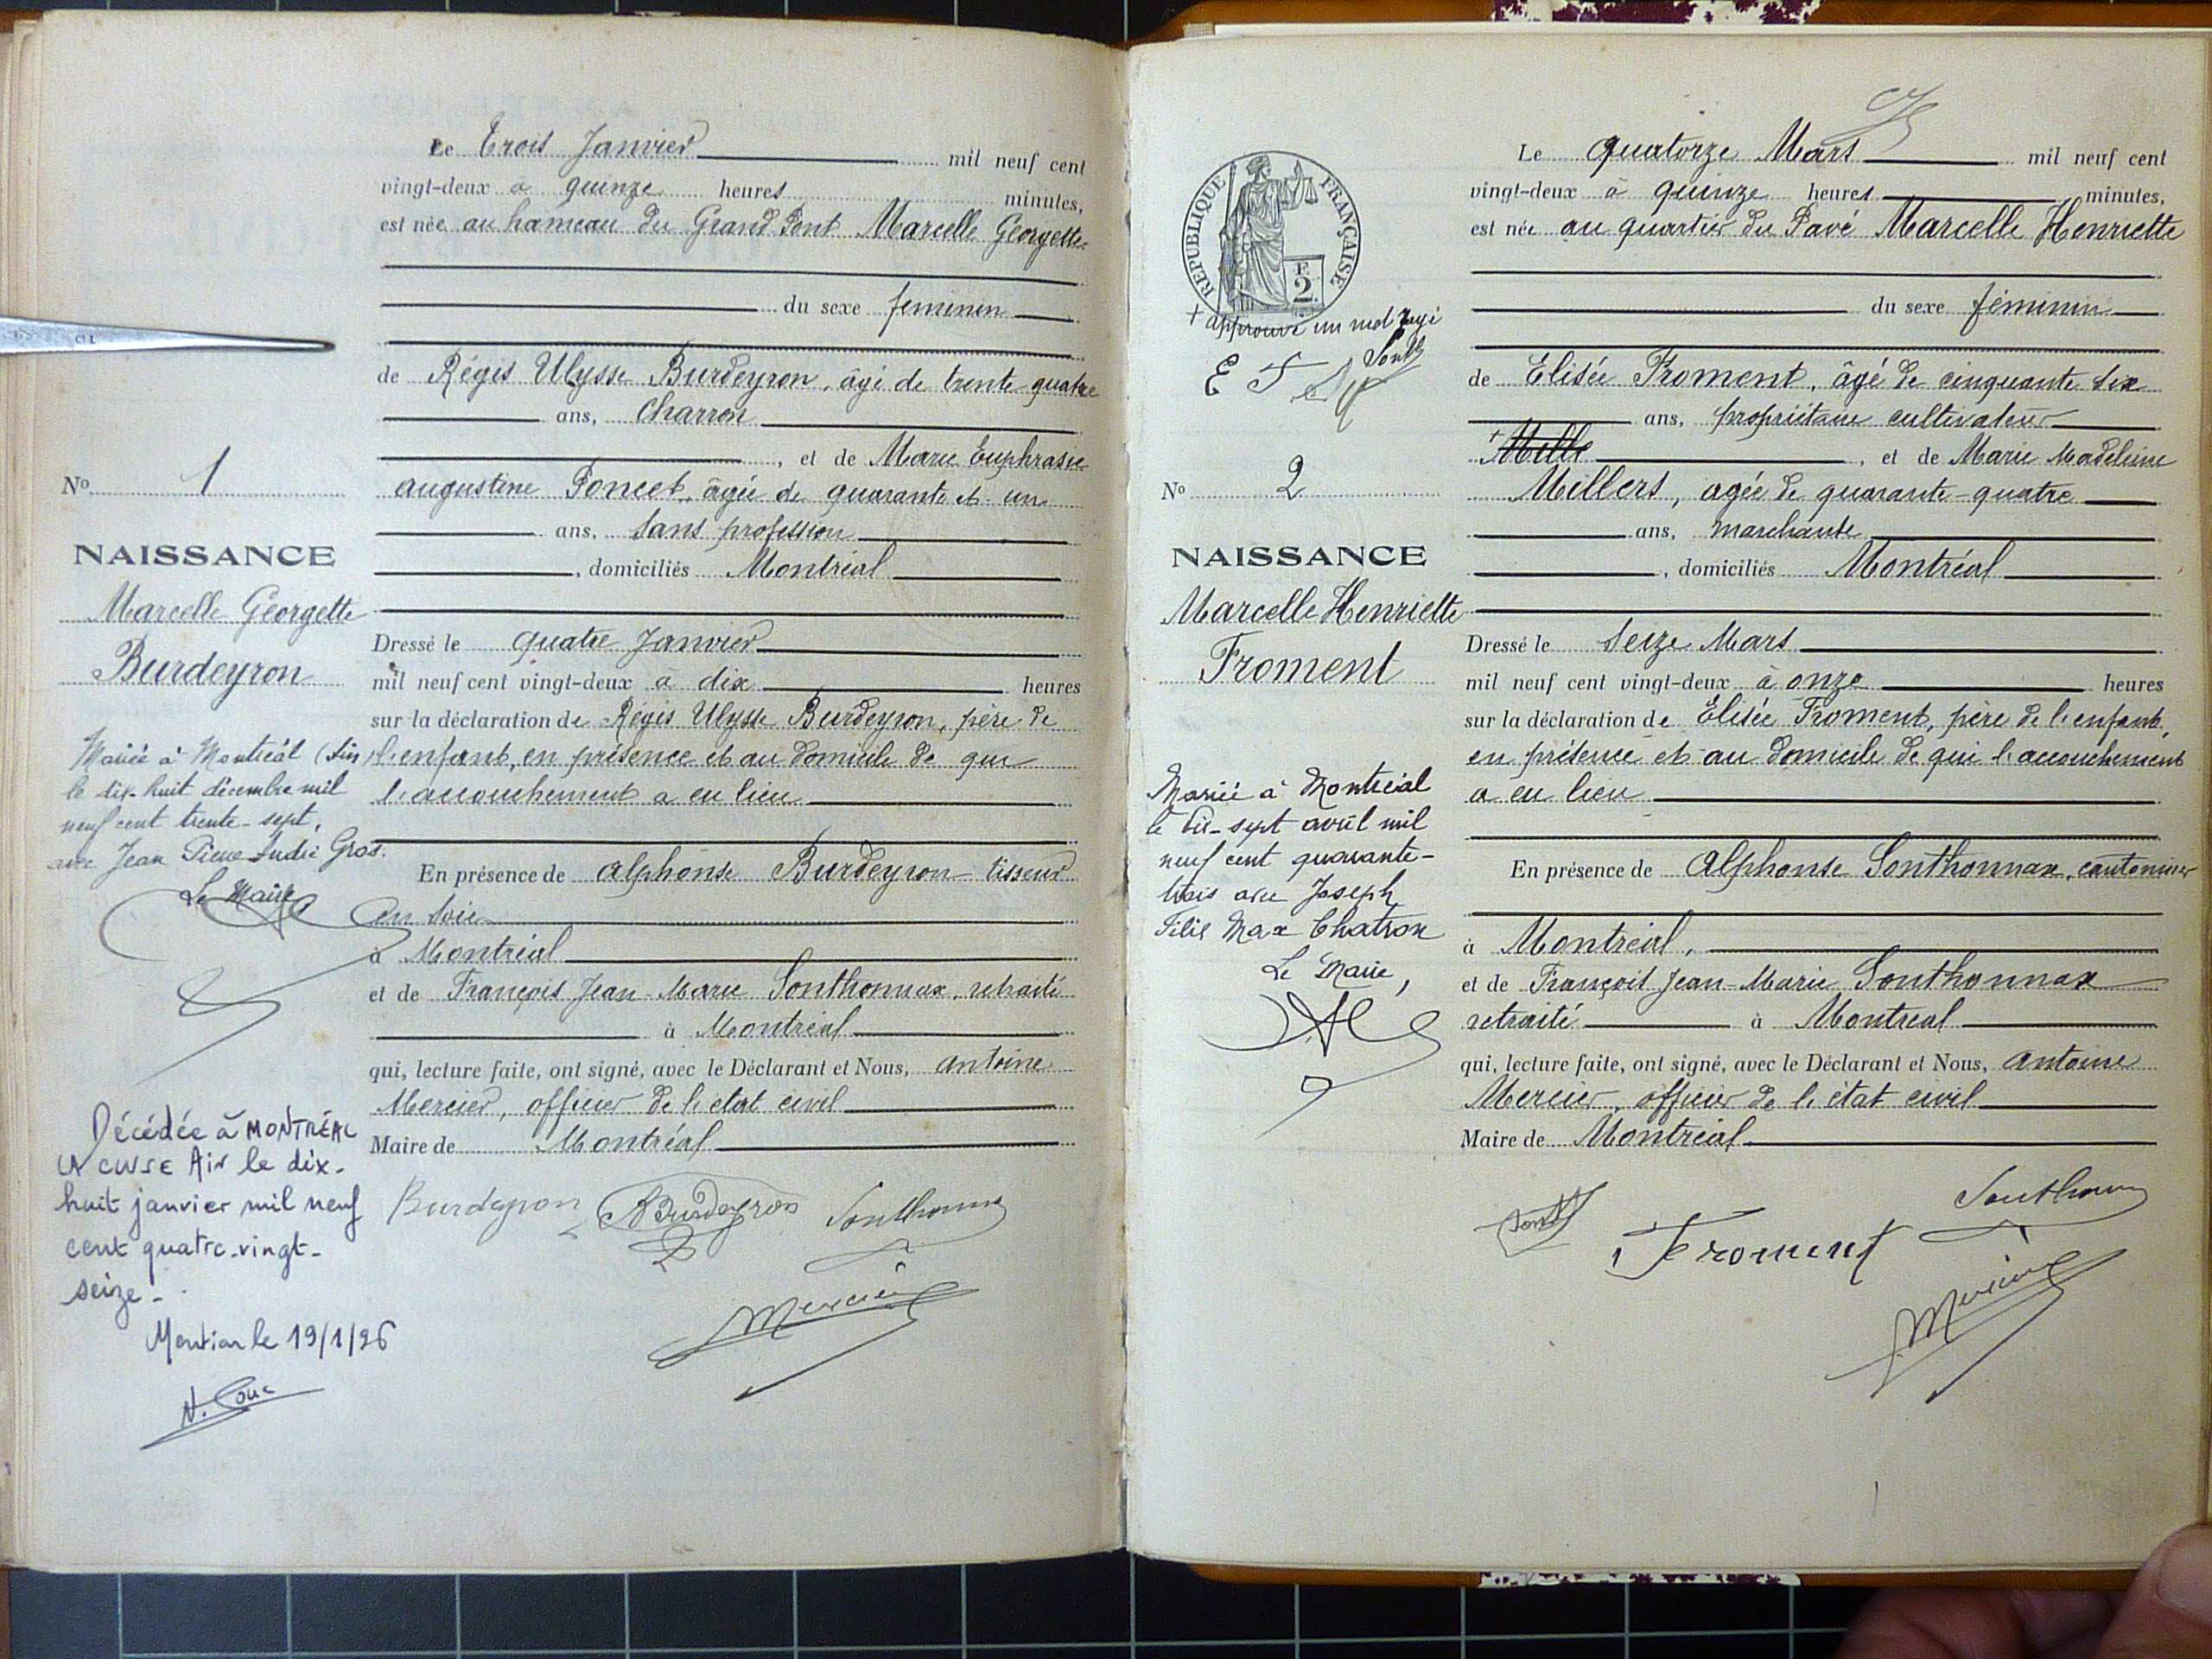 Le Trois Janvier mil neuf cent
vingt-deux à quinze heures minutes,
est née au hameau du Grand Pont Marcelle Georgette
du sexe féminin
de Régis Ulysse Burdeyron, âgé de trente quatre
ans, Charron
, et de Marie Euphrasie
augustine Poncet, âgée de quarante et un
ans, sans profession
, domiciliés Montréal
Dressé le quatre Janvier
mil neuf cent vingt-deux à dix heures
sur la déclaration de Régis Ulysse Burdeyron, père de
l'enfant, en présence et au domicile de qui
l'accouchement a eu lieu
En présence de Alphonse Burdeyron tisseur
en soie
à Montréal
et de François Jean-Marie Sonthonnax, retraité
à Montréal
qui, lecture faite, ont signé, avec le Déclarant et Nous, Antoine
Mercier, officier de l'état civil
Maire de Montréal
Burdeyron ABurdeyron Sonthonnax
Mercier
No 1
NAISSANCE
Marcelle Georgette
Burdeyron
Mariée à Montréal (Ain)
le dix-huit décembre mil
neuf cent trente-sept,
avec Jean Pierre André Gros.
Le Maire
Décédée à MONTRÉAL
LA CLUSE Ain le dix-
huit janvier mil neuf
cent quatre-vingt-
seize-
Mention le 19/1/96
Le quatorze Mars mil neuf cent
vingt-deux à quinze heures minutes,
est née au quartier du Pavé Marcelle Henriette
du sexe féminin
de Elisée Froment, âgé de cinquante six
ans, propriétaire cultivateur
+ Mille , et de Marie Madeleine
Millers, agée de quarante-quatre
ans, marchande
, domiciliés Montréal
Dressé le seize Mars
mil neuf cent vingt-deux à onze heures
sur la déclaration de Elisée Froment, père de l'enfant,
en présence et au domicile de qui l'accouchement
a eu lieu
En présence de Alphonse Sonthonnax, cantonnier
à Montréal,
et de François Jean-Marie Sonthonnax
retraité à Montréal
qui, lecture faite, ont signé, avec le Déclarant et Nous, Antoine
Mercier, officier de l'état civil
Maire de Montréal
Sonthonnax
Froment
Mercier
RÉPUBLIQUE FRANÇAISE
F. 2
+ approuvé un mot rayé
E F
No 2
NAISSANCE
Marcelle Henriette
Froment
Mariée à Montréal
le dix-sept avril mil
neuf cent quarante-
trois avec Joseph
Félix Max Chatron
Le Maire,